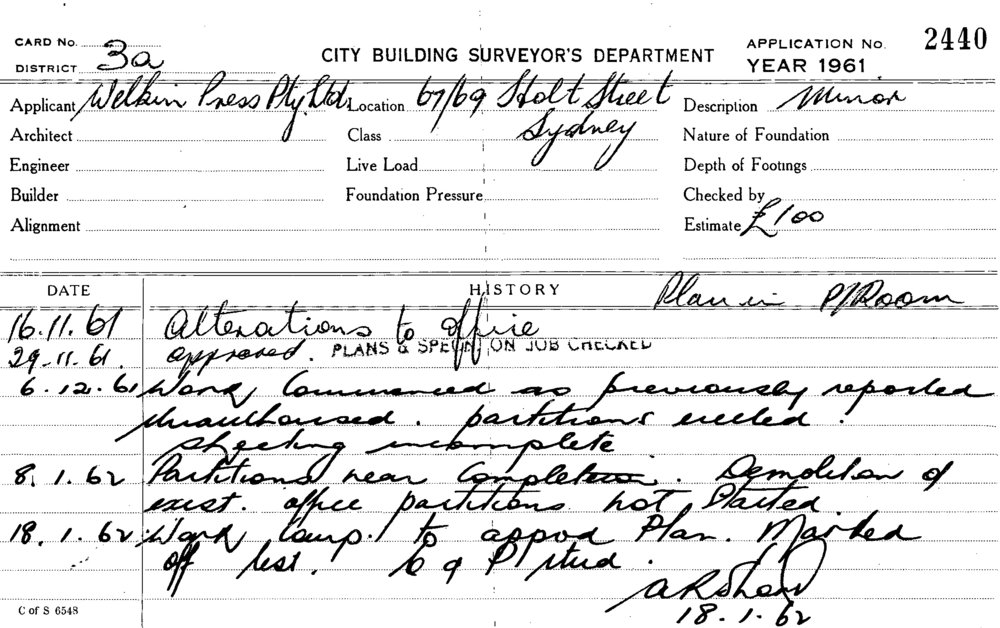 CARD No. 3a CITY BUILDING SURVEYOR'S DEPARTMENT APPLICATION No. 2440
DISTRICT YEAR 1961
Applicant Welkin Press Pty Ltd Location 67/69 Holt Street Description Minor
Architect Class Sydney Nature of Foundation
Engineer Live Load Depth of Footings
Builder Foundation Pressure Checked by
Alignment Estimate £100
DATE HISTORY Plan in P/Room
16.11.61 Alterations to office
29.11.61. approved. PLANS & SPECN. ON JOB CHECKED
6.12.61 Work Commenced as previously reported
unauthorised. partitions erected.
sheeting incomplete
8.1.62 Partitions near Completion. Demolition of
exist. office partitions not Started
18.1.62 Work Comp. to appvd Plan. Marked
off list.
A R Shaw
18.1.62
C of S 6548